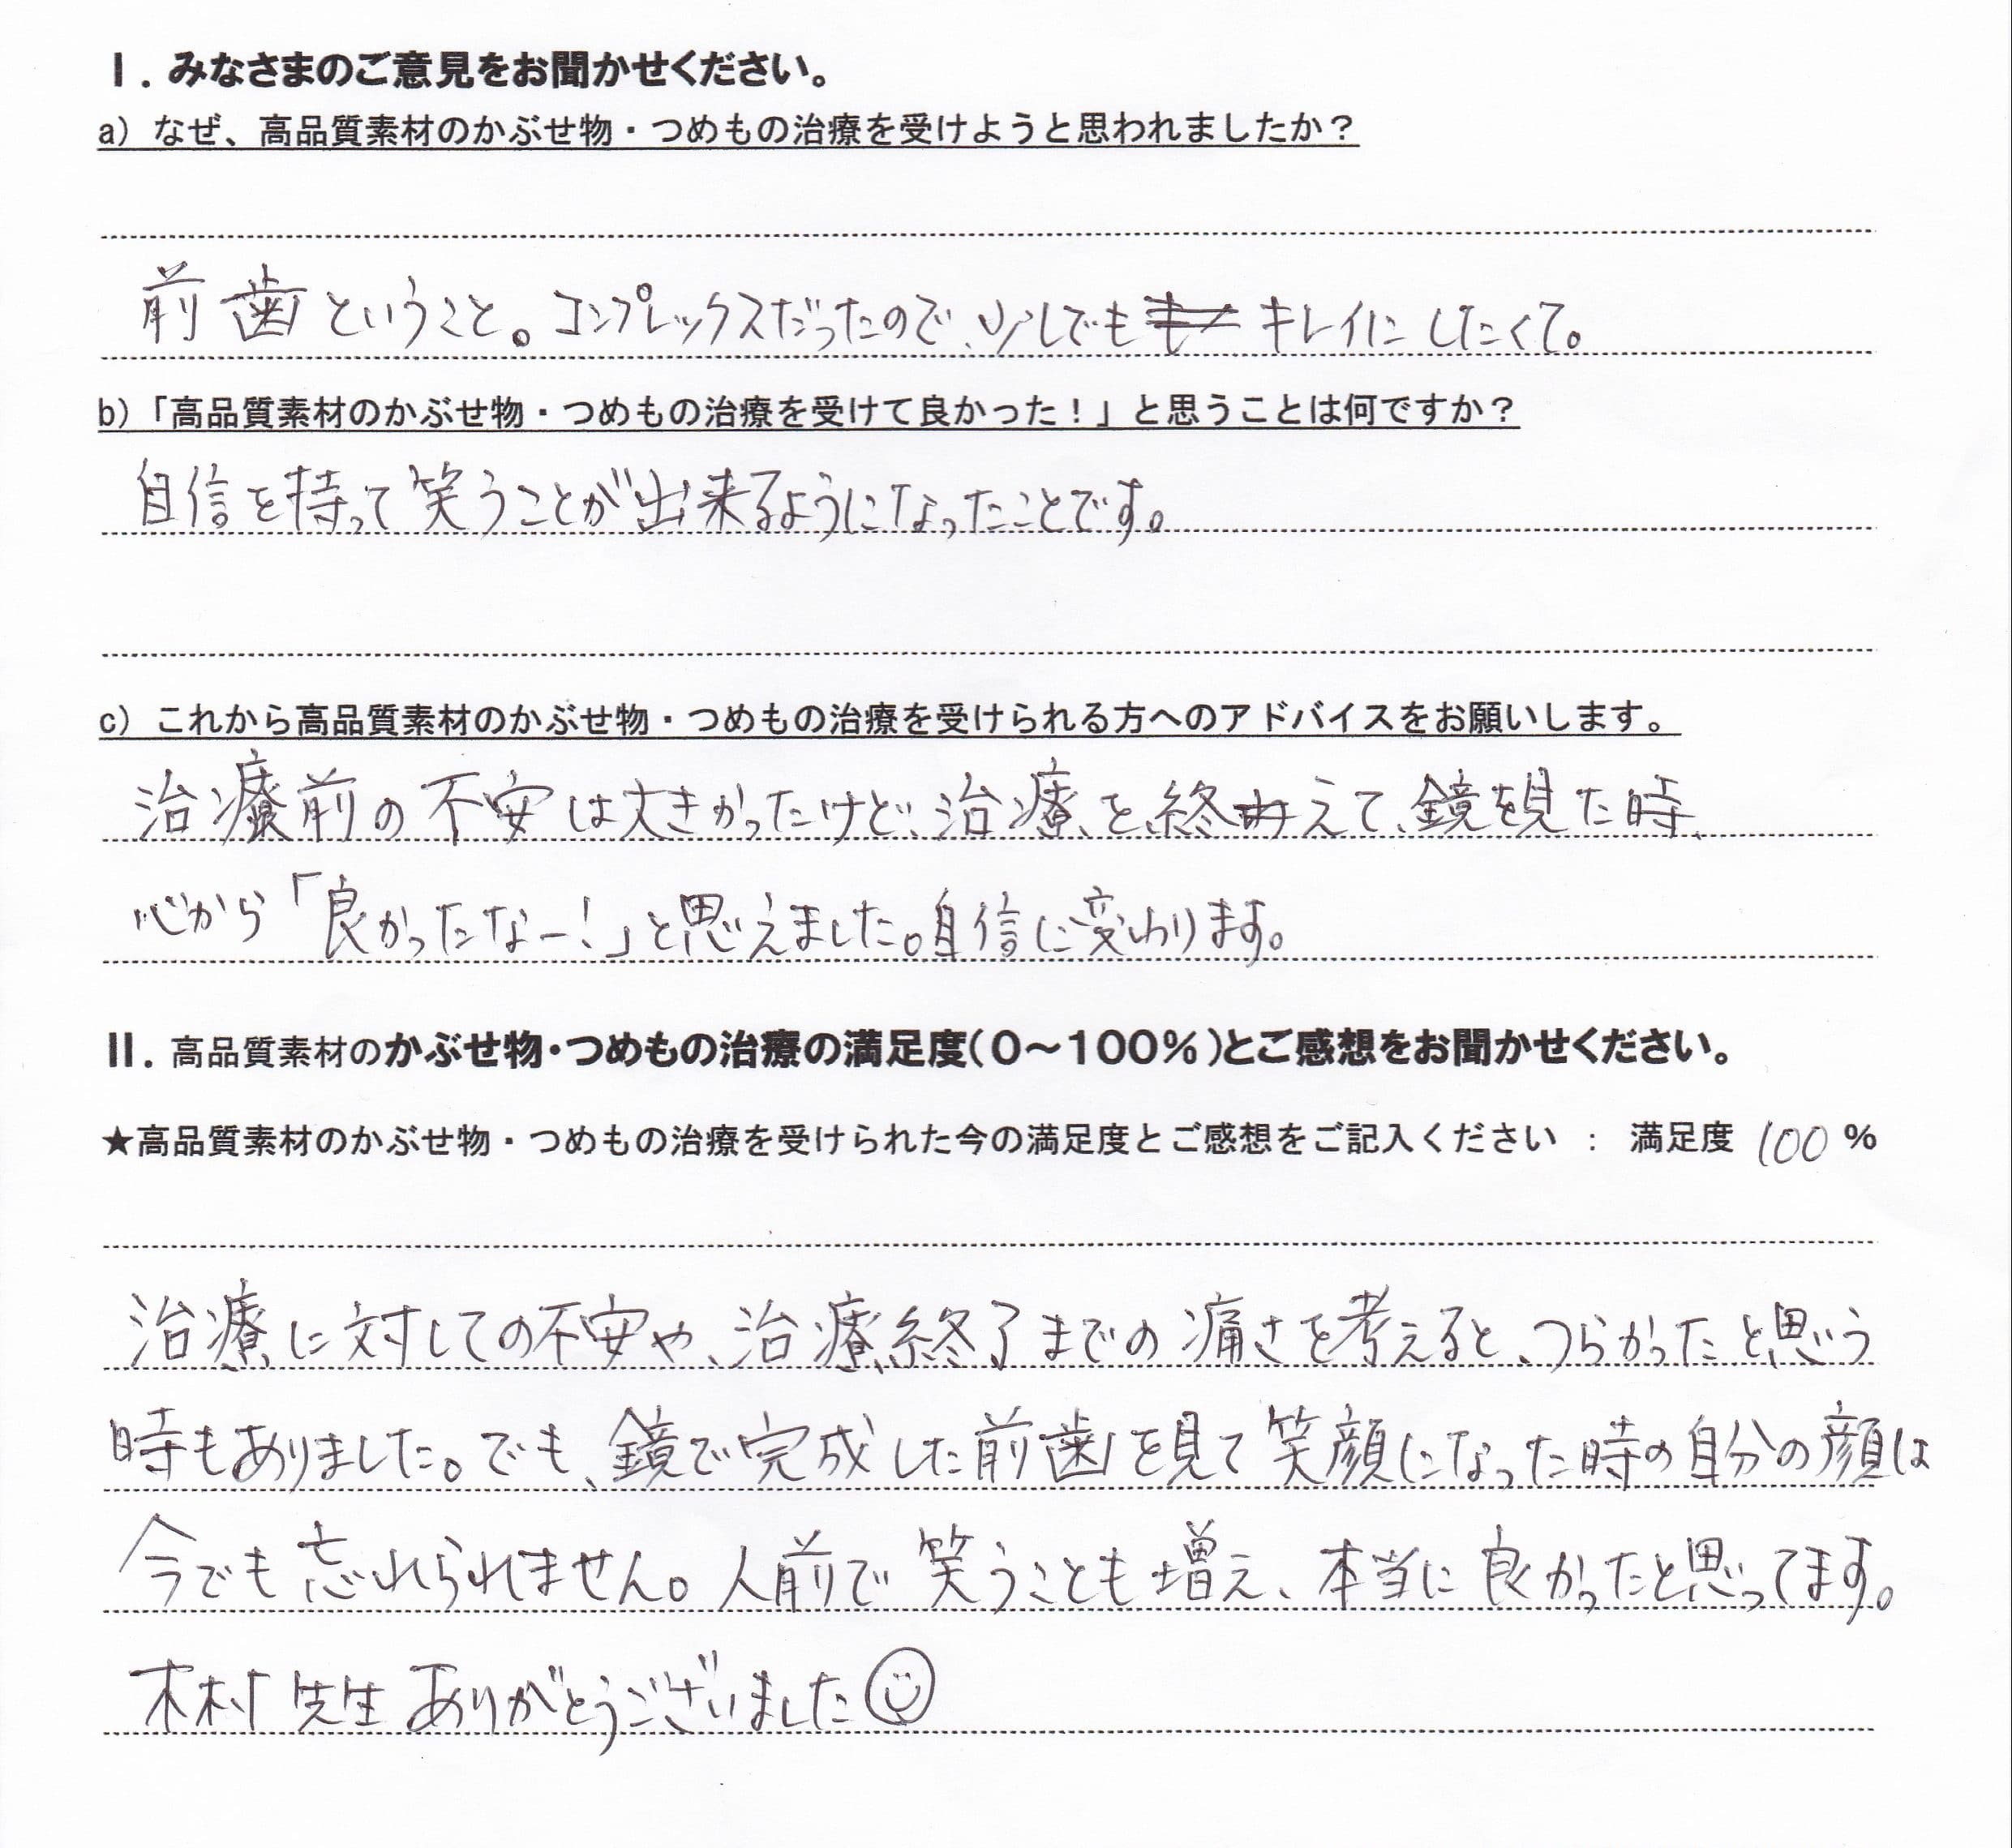 Ⅰ. みなさまのご意見をお聞かせください。
a) なぜ、高品質素材のかぶせ物・つめもの治療を受けようと思われましたか？
前歯ということ。コンプレックスだったので、少しでもキレイにしたくて。
b)「高品質素材のかぶせ物・つめもの治療を受けて良かった！」と思うことは何ですか？
自信を持って笑うことが出来るようになったことです。
c) これから高品質素材のかぶせ物・つめもの治療を受けられる方へのアドバイスをお願いします。
治療前の不安は大きかったけど、治療を終えて、鏡を見た時、
心から「良かったなー！」と思えました。自信に変わります。
Ⅱ. 高品質素材のかぶせ物・つめもの治療の満足度（０～１００％）とご感想をお聞かせください。
★高品質素材のかぶせ物・つめもの治療を受けられた今の満足度とご感想をご記入ください ： 満足度 100 %
治療に対しての不安や、治療終了までの痛さを考えると、つらかったと思う
時もありました。でも、鏡で完成した前歯を見て笑顔になった時の自分の顔は
今でも忘れられません。人前で笑うことも増え、本当に良かったと思ってます。
木村先生ありがとうございました☺